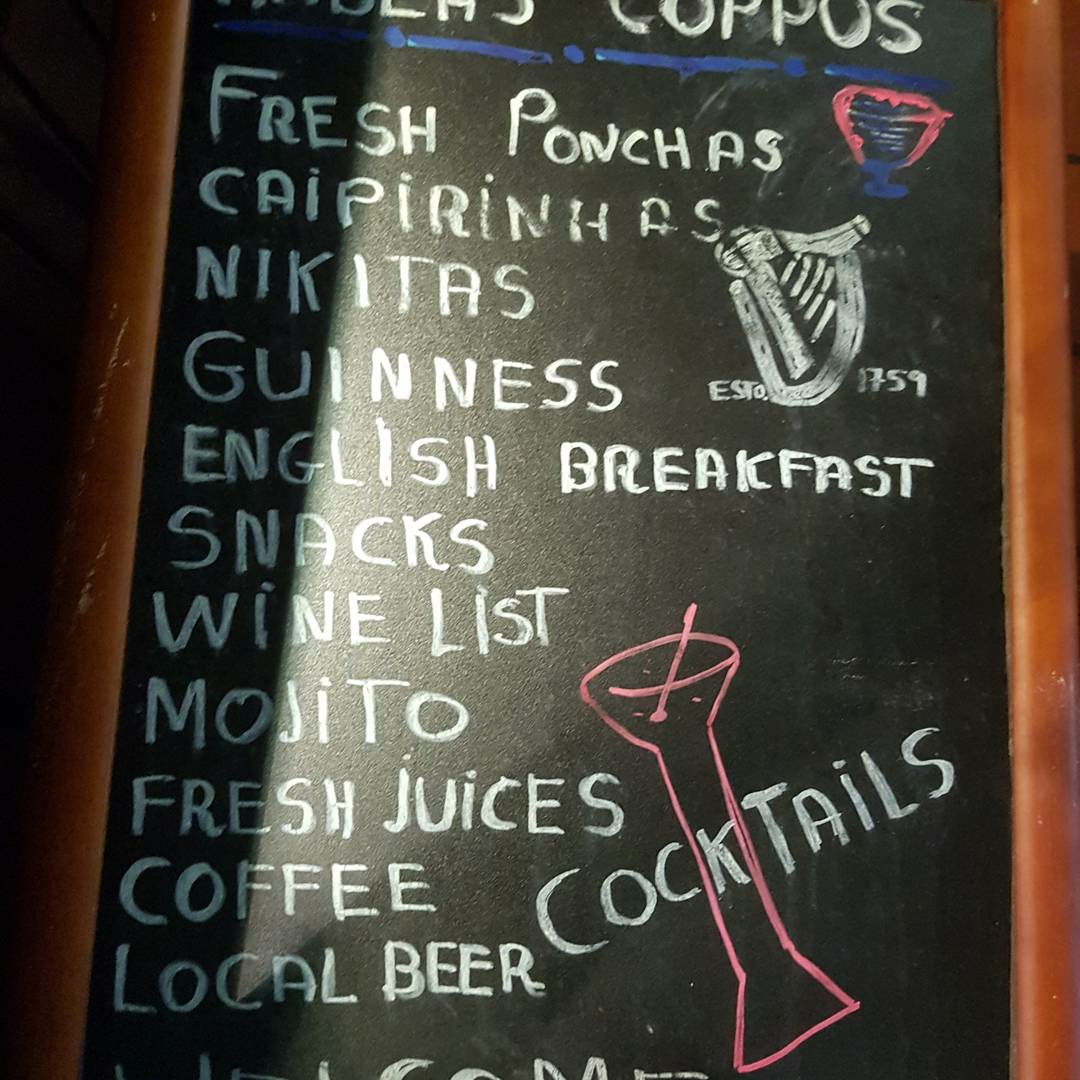 COPPOS
FRESH PONCHAS
CAIPIRINHAS
NIKITAS
GUINNESS
ESTD. 1759
ENGLISH BREAKFAST
SNACKS
WINE LIST
MOJITO
FRESH JUICES
COFFEE
COCKTAILS
LOCAL BEER
WELCOME